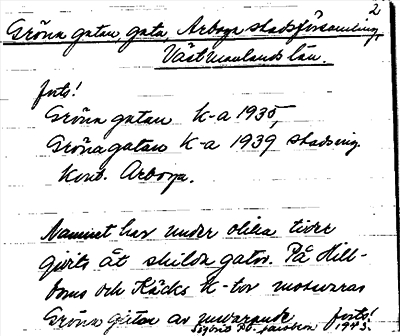 2
Gröna gatan, gata, Arboga stadsförsamling,
Västmanlands län.
forts!
Gröna gatan K-a 1935,
Gröna gatan K-a 1939 stadsing.
kont. Arboga.
Namnet har under olika tider
givits åt skilda gator. På Hill-
doms och Käcks K-tor motsvaras
Gröna gatan av nuvarande forts!
Sigurd Jansson 1943.